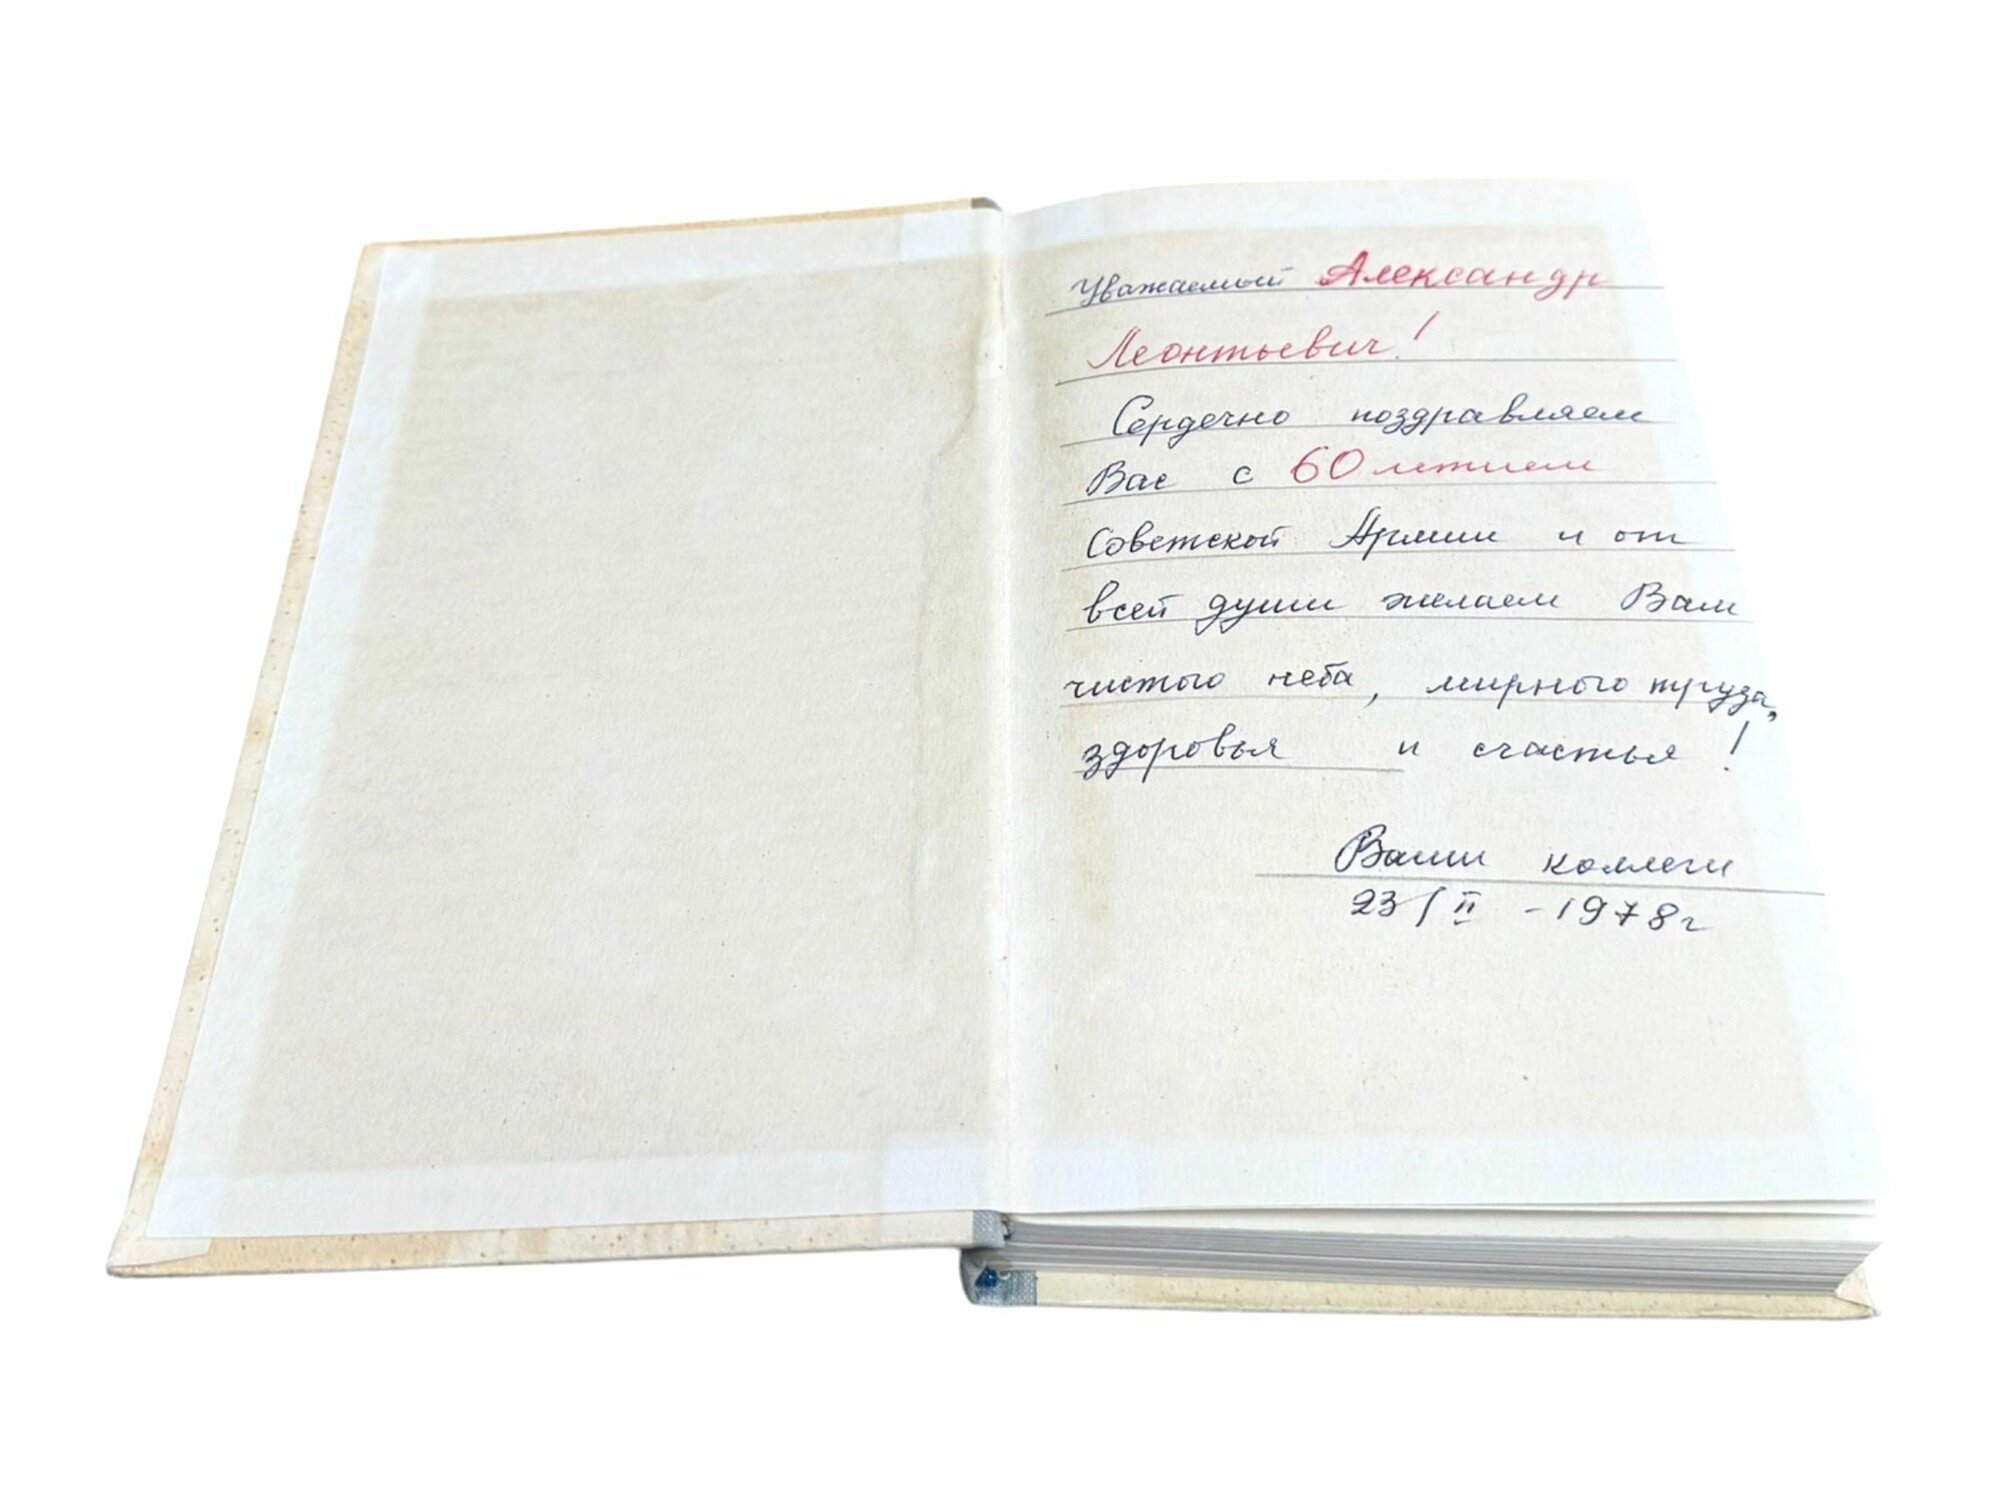 Уважаемый Александр
Леонтьевич!
Сердечно поздравляем
Вас с 60 летием
Советской Армии и от
всей души желаем Вам
чистого неба, мирного труда,
здоровья и счастья!
Ваши коллеги
23/II - 1978г